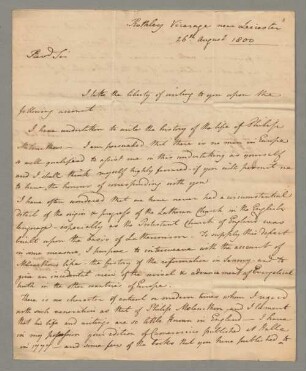 Rothley Vicarage near Leicester
26th August 1800
Revd Sir
I take the liberty of writing to you upon the
following account
I have undertaken to write the history of the life of Philip
Melancthon — I am persuaded that there is no man in Europe
so well qualified to assist me in this undertaking as yourself
and I shall think myself highly favored if you will permit me
to have the honour of corresponding with you
I have often wondered that we have never had a circumstantial
detail of the rise & progress of the Lutheran Church in the English
language — especially as the Protestant Church of England was
built upon the basis of Lutheranism. To supply this defect
in some measure, I purpose to interweave with the account of
Melancthons life, the history of the reformation in learning, and to
give an incidental view of the revival & advancement of Evangelical
truth in the other countries of Europe.
There is no character of ancient or modern times whom I regard
with such veneration as that of Philip Melancthon and I lament
that his life and writings are so little known in England — I have
in my possession your edition of Camerarius published at Halle
in 1777 — and some few of the books that you have published, &